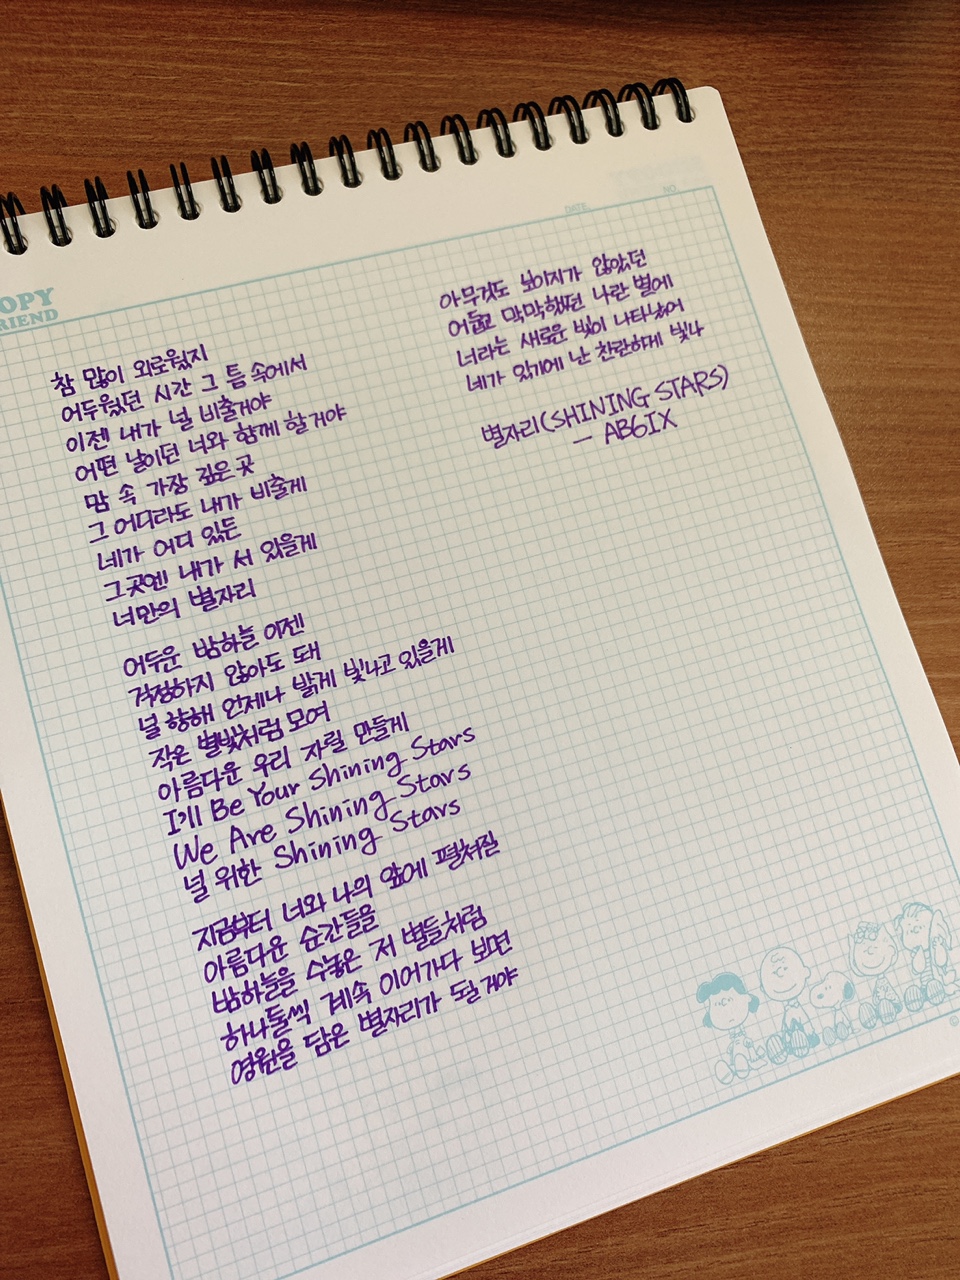 OPY
RIEND
DATE.
NO.
참 많이 외로웠지
어두웠던 시간 그 틈 속에서
이젠 내가 널 비출거야
어떤 날이던 너와 함께 할거야
맘 속 가장 깊은 곳
그 어디라도 내가 비출게
네가 어디 있든
그곳엔 내가 서 있을게
너만의 별자리
어두운 밤하늘 이젠
걱정하지 않아도 돼
널 향해 언제나 밝게 빛나고 있을게
작은 별빛처럼 모여
아름다운 우리 자릴 만들게
I'll Be Your Shining Stars
We Are Shining Stars
널 위한 Shining Stars
지금부터 너와 나의 앞에 펼쳐질
아름다운 순간들을
밤하늘을 수놓은 저 별들처럼
하나둘씩 계속 이어가다 보면
영원을 담은 별자리가 되거야
아무것도 보이지가 않았던
어둡고 막막했던 나란 별에
너라는 새로운 빛이 나타났어
네가 있기에 난 찬란하게 빛나
별자리(SHINING STARS)
— AB6IX